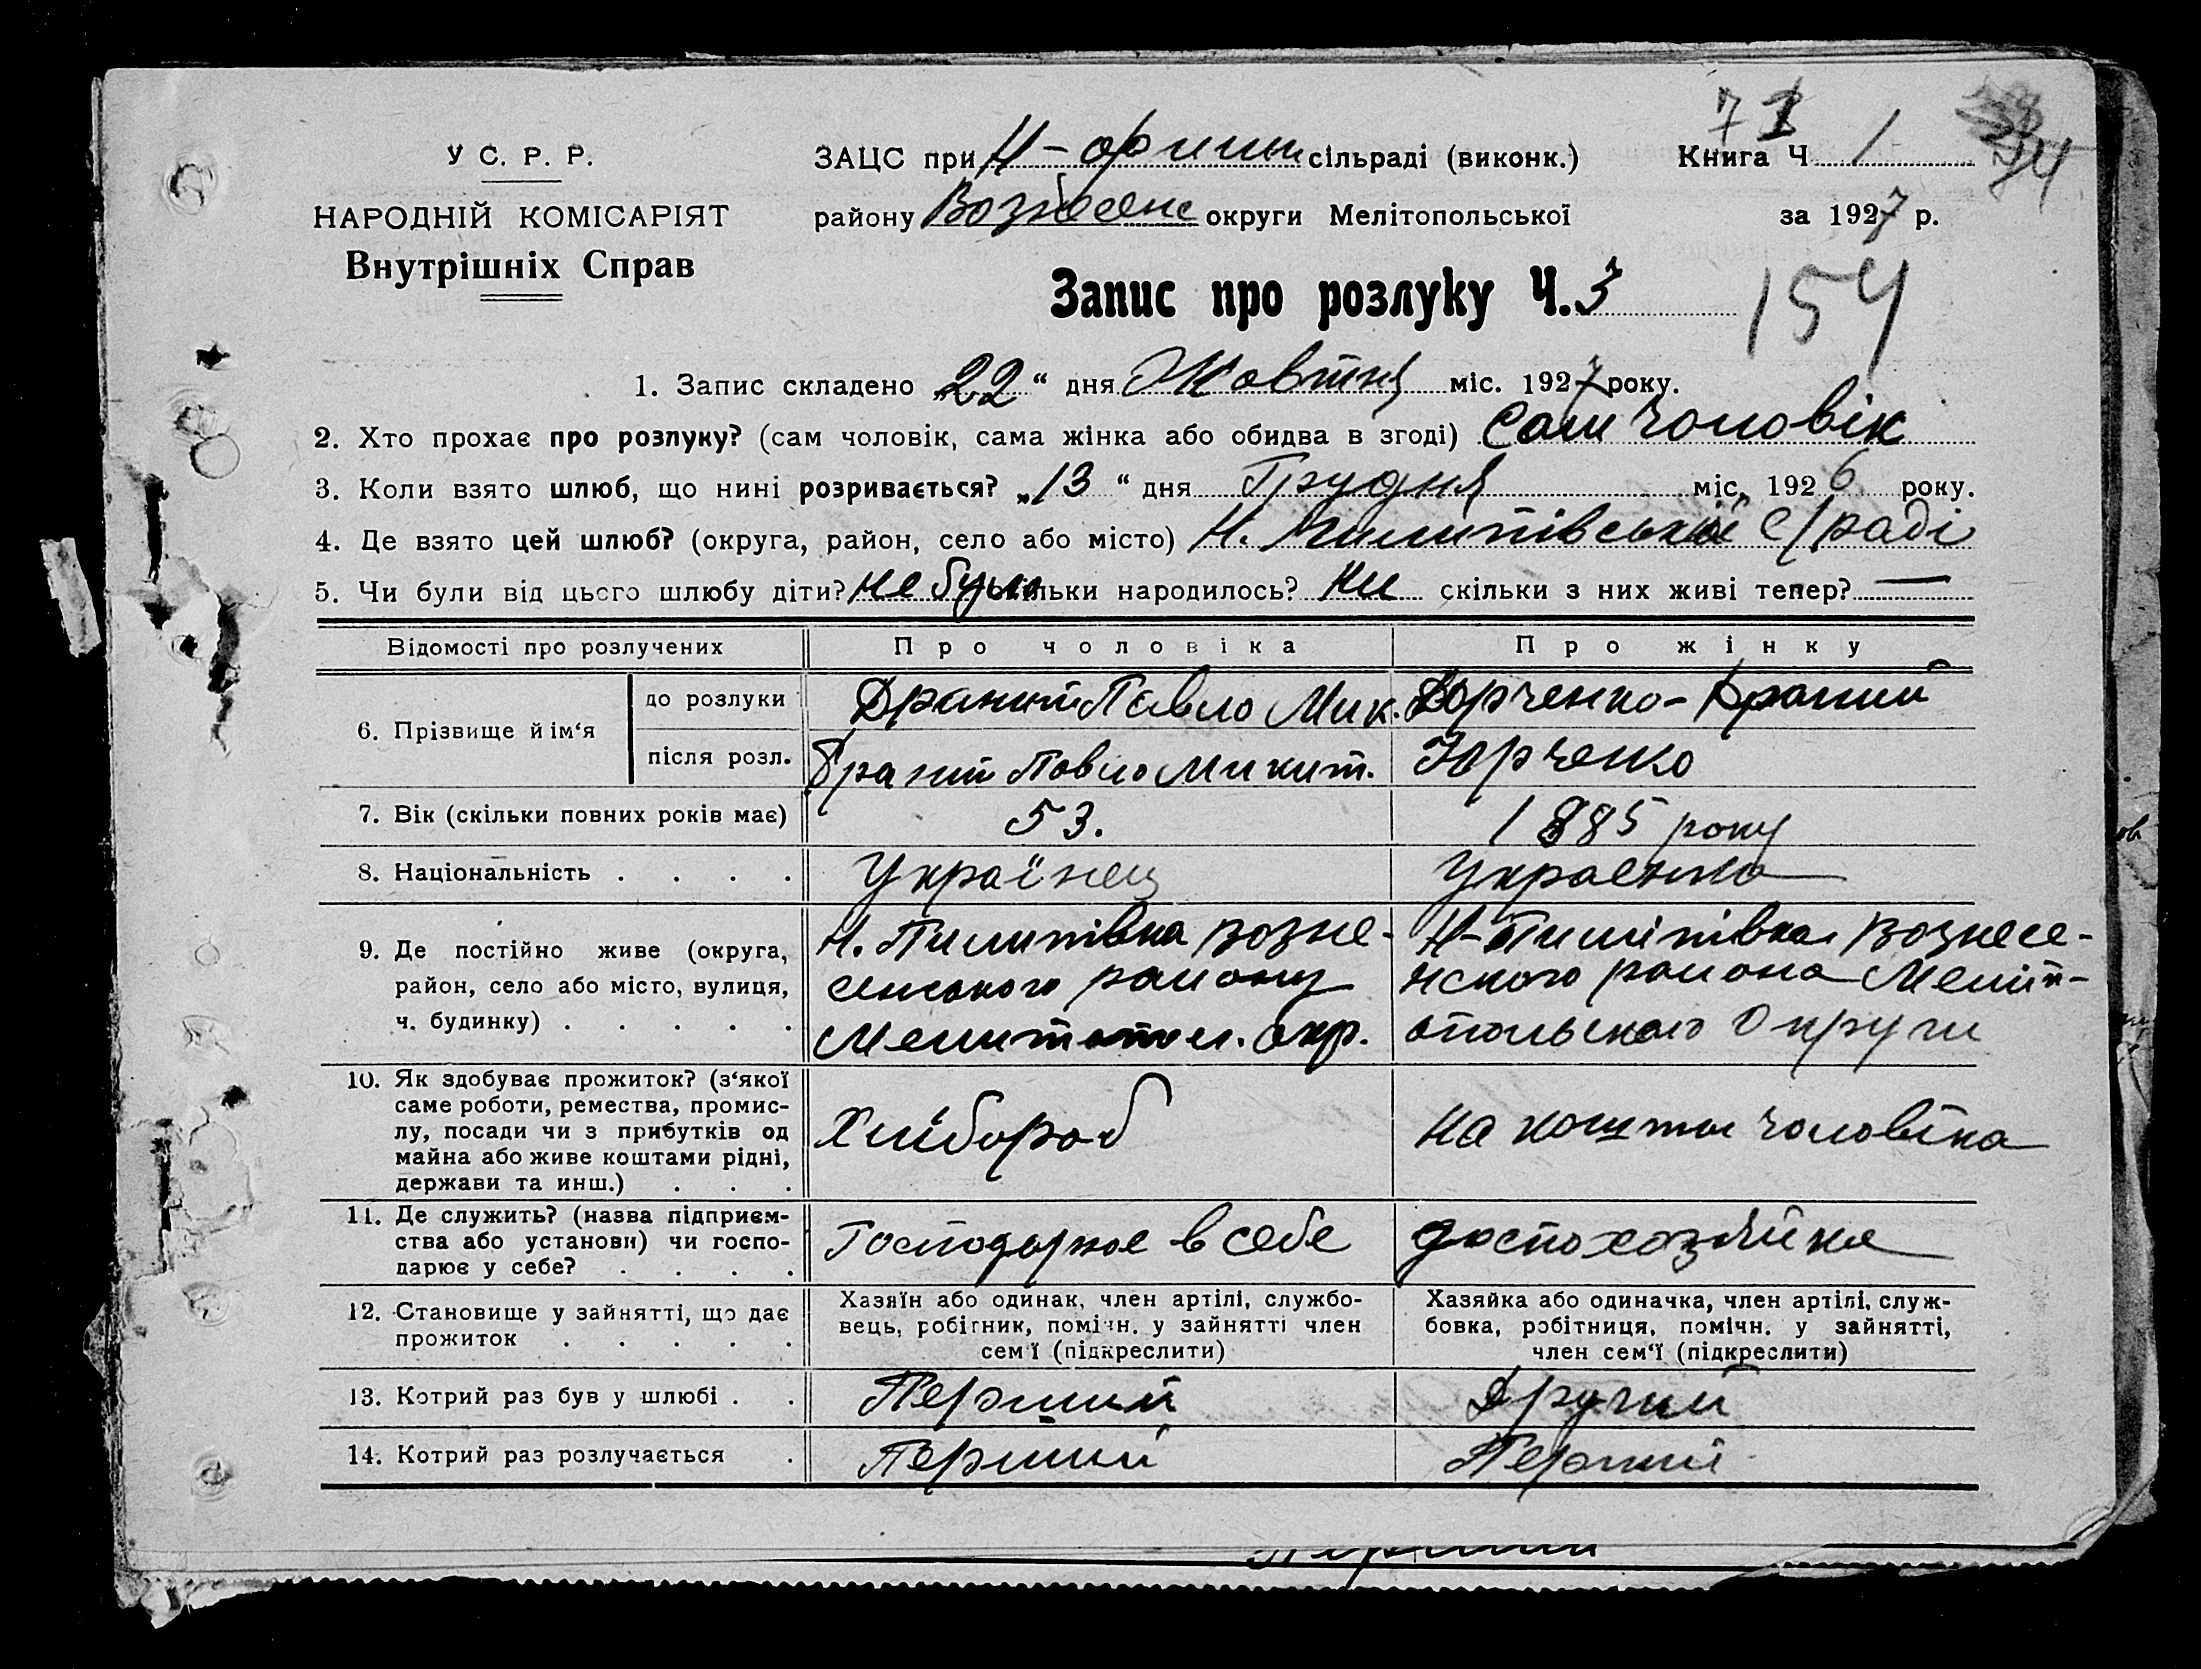 7
У С. Р. Р.
ЗАЦС при сільраді (виконк.)
Книга Ч 1
НАРОДНІЙ КОМІСАРІЯТ
району Вознесенс округи Мелітопольської
за 1927 р.
Внутрішніх Справ
Запис про розлуку Ч. 3
154
1. Запис складено „22“ дня Жовтня міс. 1927 року.
2. Хто прохає про розлуку? (сам чоловік, сама жінка або обидва в згоді) Сам чоловік
3. Коли взято шлюб, що нині розривається? „13“ дня Грудня міс. 1926 року.
4. Де взято цей шлюб? (округа, район, село або місто) Н. Пилипівській С/раді
5. Чи були від цього шлюбу діти? не було скільки народилось? ни скільки з них живі тепер? —
Відомості про розлучених
Про чоловіка
Про жінку
6. Прізвище й ім‘я
до розлуки
Драний Павло Мик.
Юрченко-Драний
після розл.
Драний Павло Микит.
Юрченко
7. Вік (скільки повних років має)
53.
1885 року
8. Національність . . . .
Українец
Украенка
9. Де постійно живе (округа,
район, село або місто, вулиця,
ч. будинку) . . . . .
Н. Пилипівка возне-
сенського району
Мелитопол. окр.
Н-Пилипівка вознесе-
нского района Меліт-
опольского Округи
10. Як здобуває прожиток? (з‘якої
саме роботи, ремества, промис-
лу, посади чи з прибутків од
майна або живе коштами рідні,
держави та инш.) . . .
Хлібороб
на кошты чоловіка
11. Де служить? (назва підприєм-
ства або установи) чи госпо-
дарює у себе? . . . .
Господарює в себе
домохозяйка
12. Становище у зайнятті, що дає
прожиток . . . . .
Хазяїн або одинак, член артілі, службо-
вець, робітник, помічн. у зайнятті член
сем‘ї (підкреслити)
Хазяйка або одиначка, член артілі, служ-
бовка, робітниця, помічн. у зайнятті,
член сем‘ї (підкреслити)
13. Котрий раз був у шлюбі . .
Перший
Другий
14. Котрий раз розлучається .
Перший
Перший